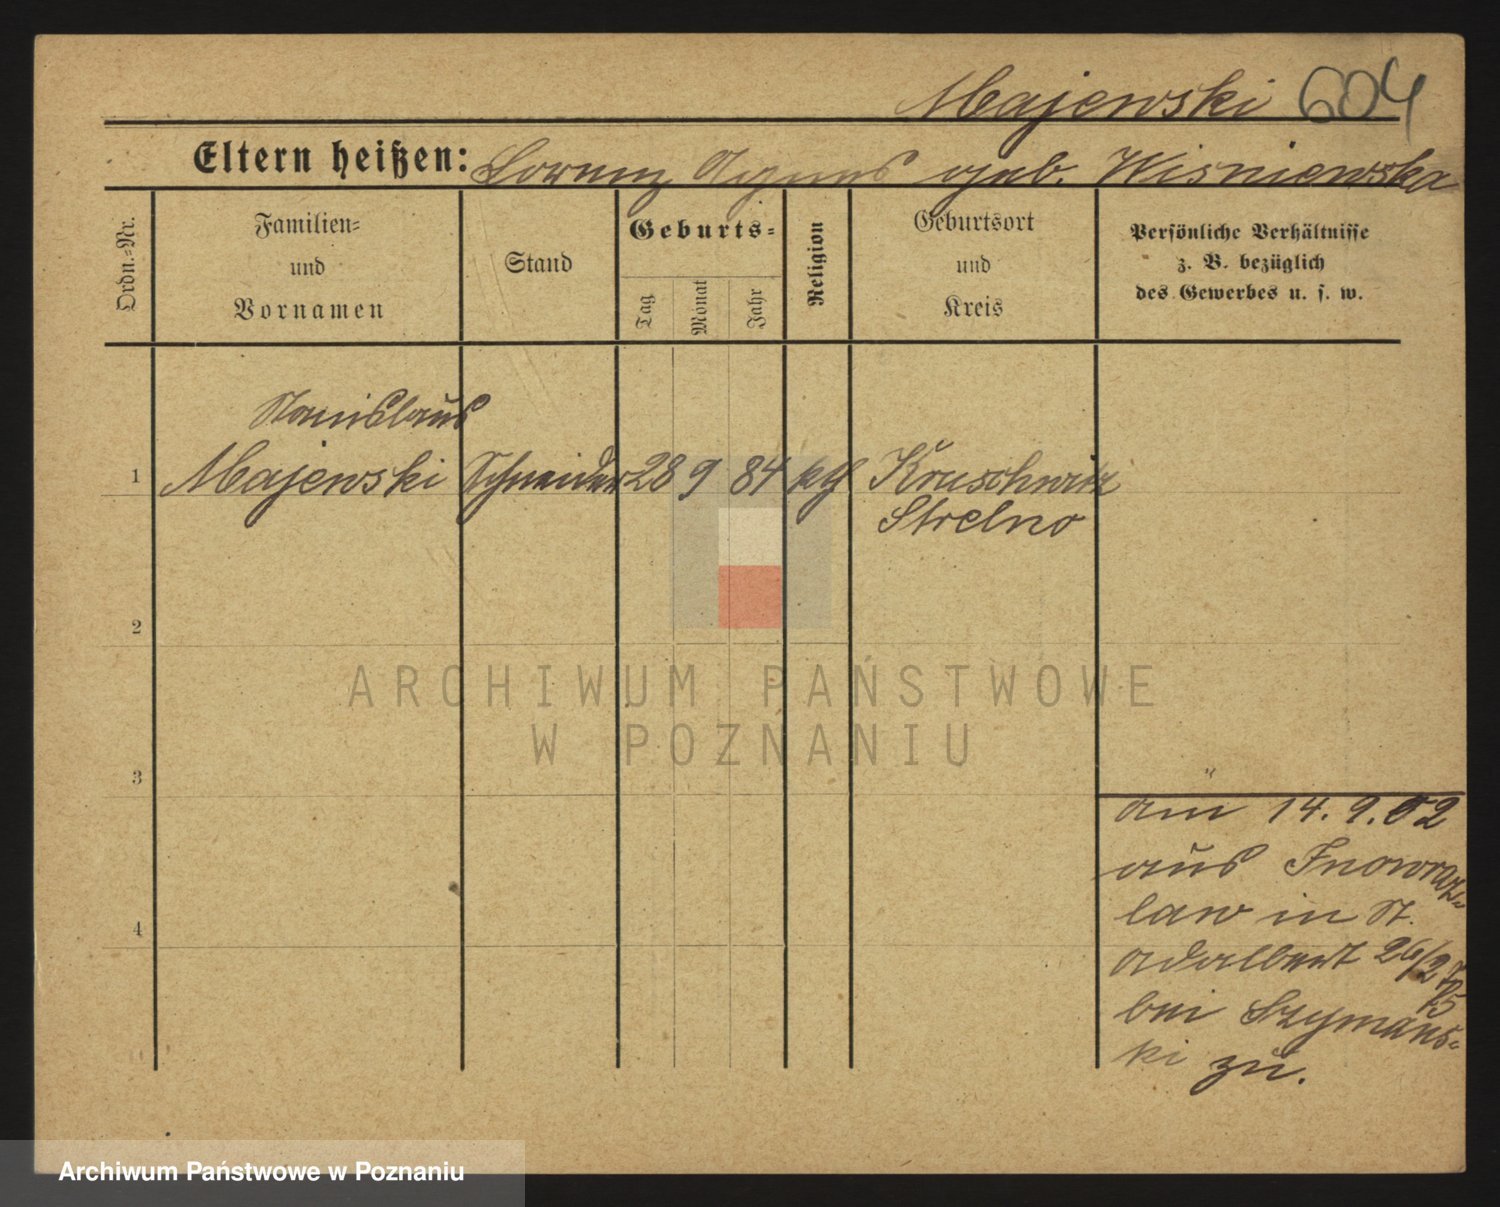 Majewski 604
Eltern heißen: Lorenz Agnes geb. Wisniewska
Ordn.-Nr.
Familien-
und
Vornamen
Stand
Geburts-
Tag
Monat
Jahr
Religion
Geburtsort
und
Kreis
Persönliche Verhältnisse
z. B. bezüglich
des Gewerbes u. s. w.
Stanislaus
1 Majewski Schneider 28 9 84 kth Kruschwitz
Strelno
2
3
4
am 14. 9. 02
aus Inowraz-
law in St.
Adalbert 26/27
bei Szymans-
ki zu.
ARCHIWUM PAŃSTWOWE
W POZNANIU
Archiwum Państwowe w Poznaniu